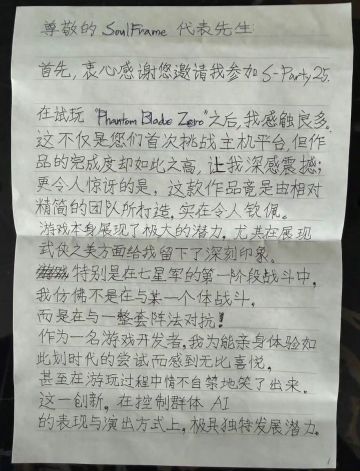 尊敬的 SoulFrame 代表先生
首先，衷心感谢您邀请我参加 S-Party 25.
在试玩 "Phantom Blade Zero" 之后，我感触良多。
这不仅是您们首次挑战主机平台，但作
品的完成度却如此之高，让我深感震撼；
更令人惊讶的是，这款作品竟是由相对
精简的团队所打造，实在令人钦佩。
游戏本身展现了极大的潜力，尤其在展现
武侠之美方面给我留下了深刻印象。
特别是在七星军的第一阶段战斗中，
我仿佛不是在与某一个体战斗，
而是在与一整套阵法对抗！
作为一名游戏开发者，我为能亲身体验如
此划时代的尝试而感到无比喜悦，
甚至在游玩过程中情不自禁地笑了出来。
这一创新，在控制群体 AI
的表现与演出方式上，极具独特发展潜力。
1